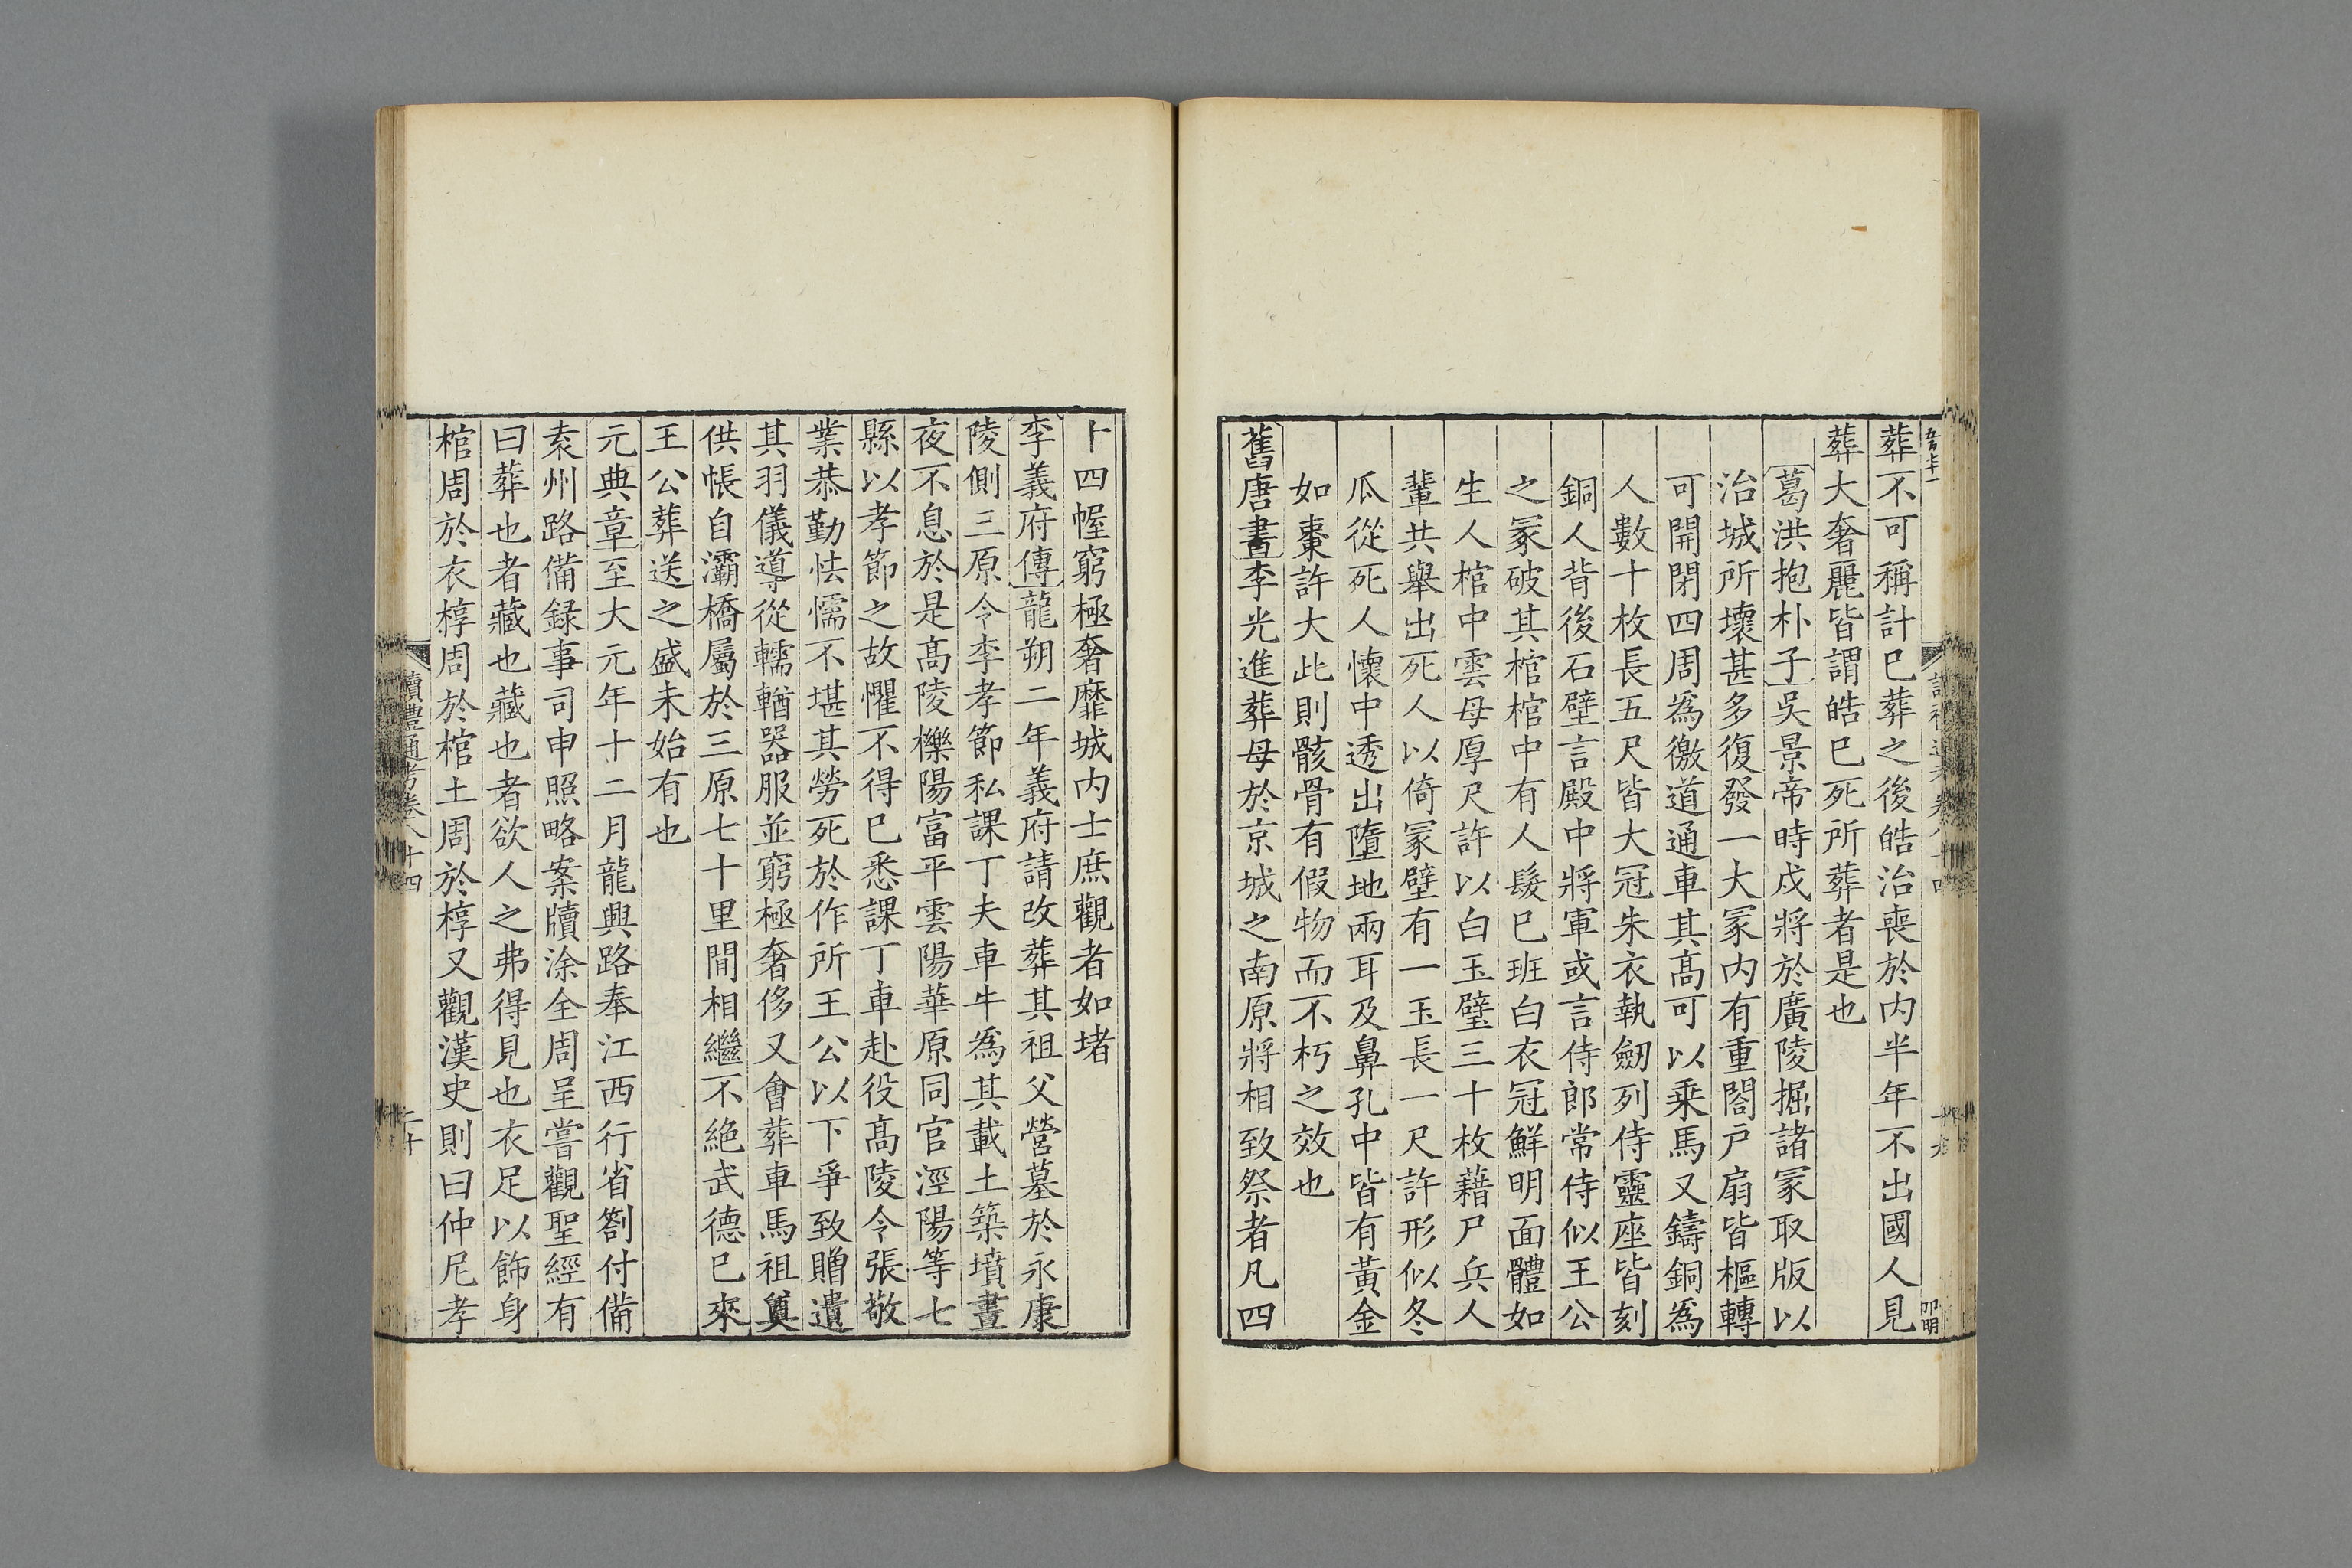 葬不可稱計已葬之後皓治喪於内半年不出國人見
葬大奢麗皆謂皓已死所葬者是也
葛洪抱朴子吳景帝時戍將於廣陵掘諸冢取版以
治城所壞甚多復發一大冢内有重閤戸扇皆樞轉
可開閉四周爲徼道通車其髙可以乗馬又鑄銅爲
人數十枚長五尺皆大冠朱衣執劒列侍靈座皆刻
銅人背後石壁言殿中將軍或言侍郎常侍似王公
之冢破其棺棺中有人髮已班白衣冠鮮明面體如
生人棺中雲母厚尺許以白玉璧三十枚藉尸兵人
輩共舉出死人以倚冢壁有一玉長一尺許形似冬
瓜從死人懷中透出墮地兩耳及鼻孔中皆有黃金
如棗許大此則骸骨有假物而不朽之效也
舊唐書李光進葬母於京城之南原將相致祭者凡四
十四幄窮極奢靡城内士庶觀者如堵
李義府傳龍朔二年義府請改葬其祖父營墓於永康
陵側三原令李孝節私課丁夫車牛爲其載土築墳晝
夜不息於是髙陵櫟陽富平雲陽華原同官涇陽等七
縣以孝節之故懼不得已悉課丁車赴役髙陵令張敬
業恭勤怯懦不堪其勞死於作所王公以下爭致贈遺
其羽儀導從轜輶器服並窮極奢侈又會葬車馬祖奠
供帳自灞橋屬於三原七十里間相繼不絶武德已來
王公葬送之盛未始有也
元典章至大元年十二月龍興路奉江西行省劄付備
袁州路備録事司申照略案牘涂全周呈嘗觀聖經有
曰葬也者藏也藏也者欲人之弗得見也衣足以飾身
棺周於衣椁周於棺土周於椁又觀漢史則曰仲尼孝
讀禮通考卷八十四
二十